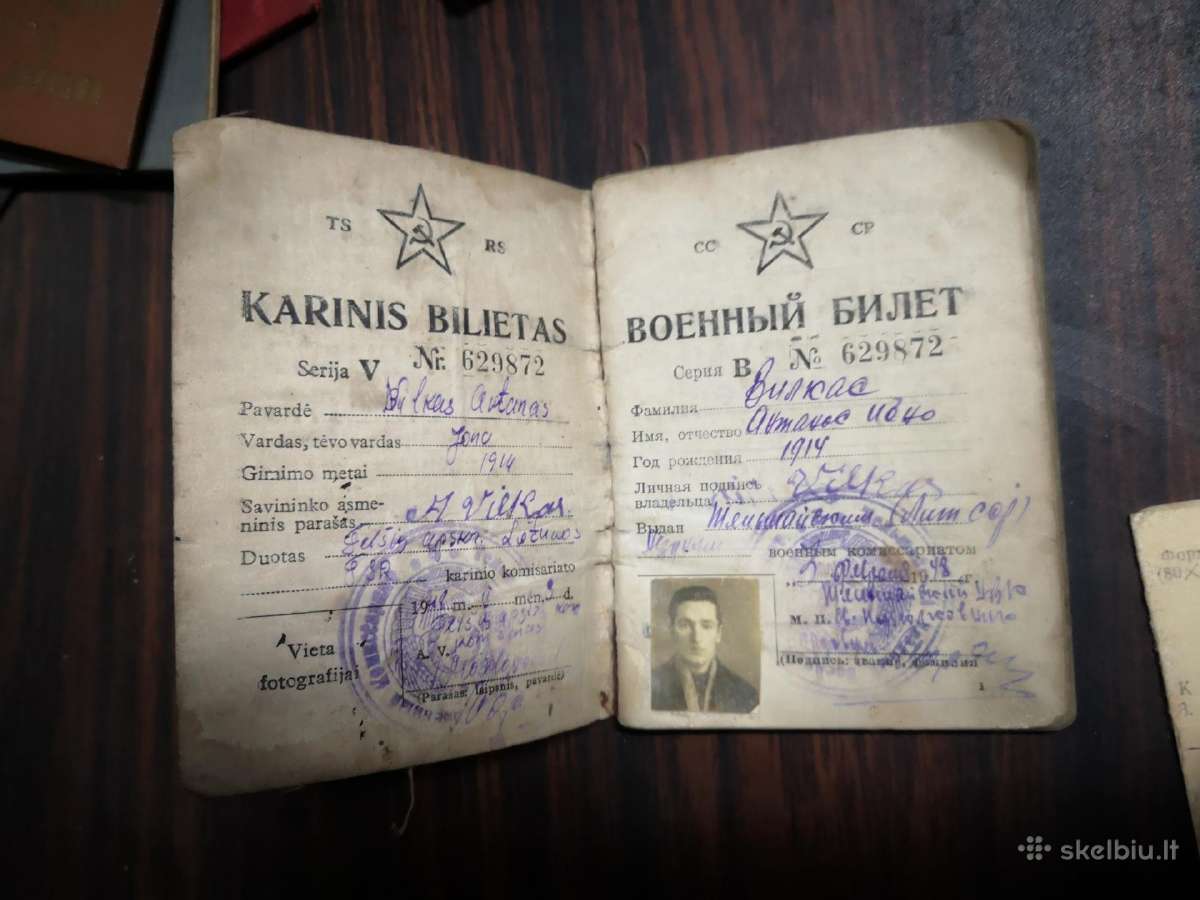 TS RS
KARINIS BILIETAS
Serija V Nr. 629872
Pavardė Vilkas Antanas
Vardas, tėvo vardas Jono
Gimimo metai 1914
Savininko asme-
ninis parašas A Vilkas
Duotas Telšių apskr. Lietuvos
TSR karinio komisariato
1948 m. mėn. 2 d.
Vieta
fotografijai
A. V.
(Parašas: laipsnis, pavardė)
СС СР
ВОЕННЫЙ БИЛЕТ
Серия В № 629872
Фамилия Вилкас
Имя, отчество Антанас Ионо
Год рождения 1914
Личная подпись
владельца Vilkas
Выдан Тельшайским (Лит ССР)
военным комиссариатом
2 1948 г.
М. П.
(Подпись: звание, фамилия
1
Фор
(80×
К
skelbiu.lt